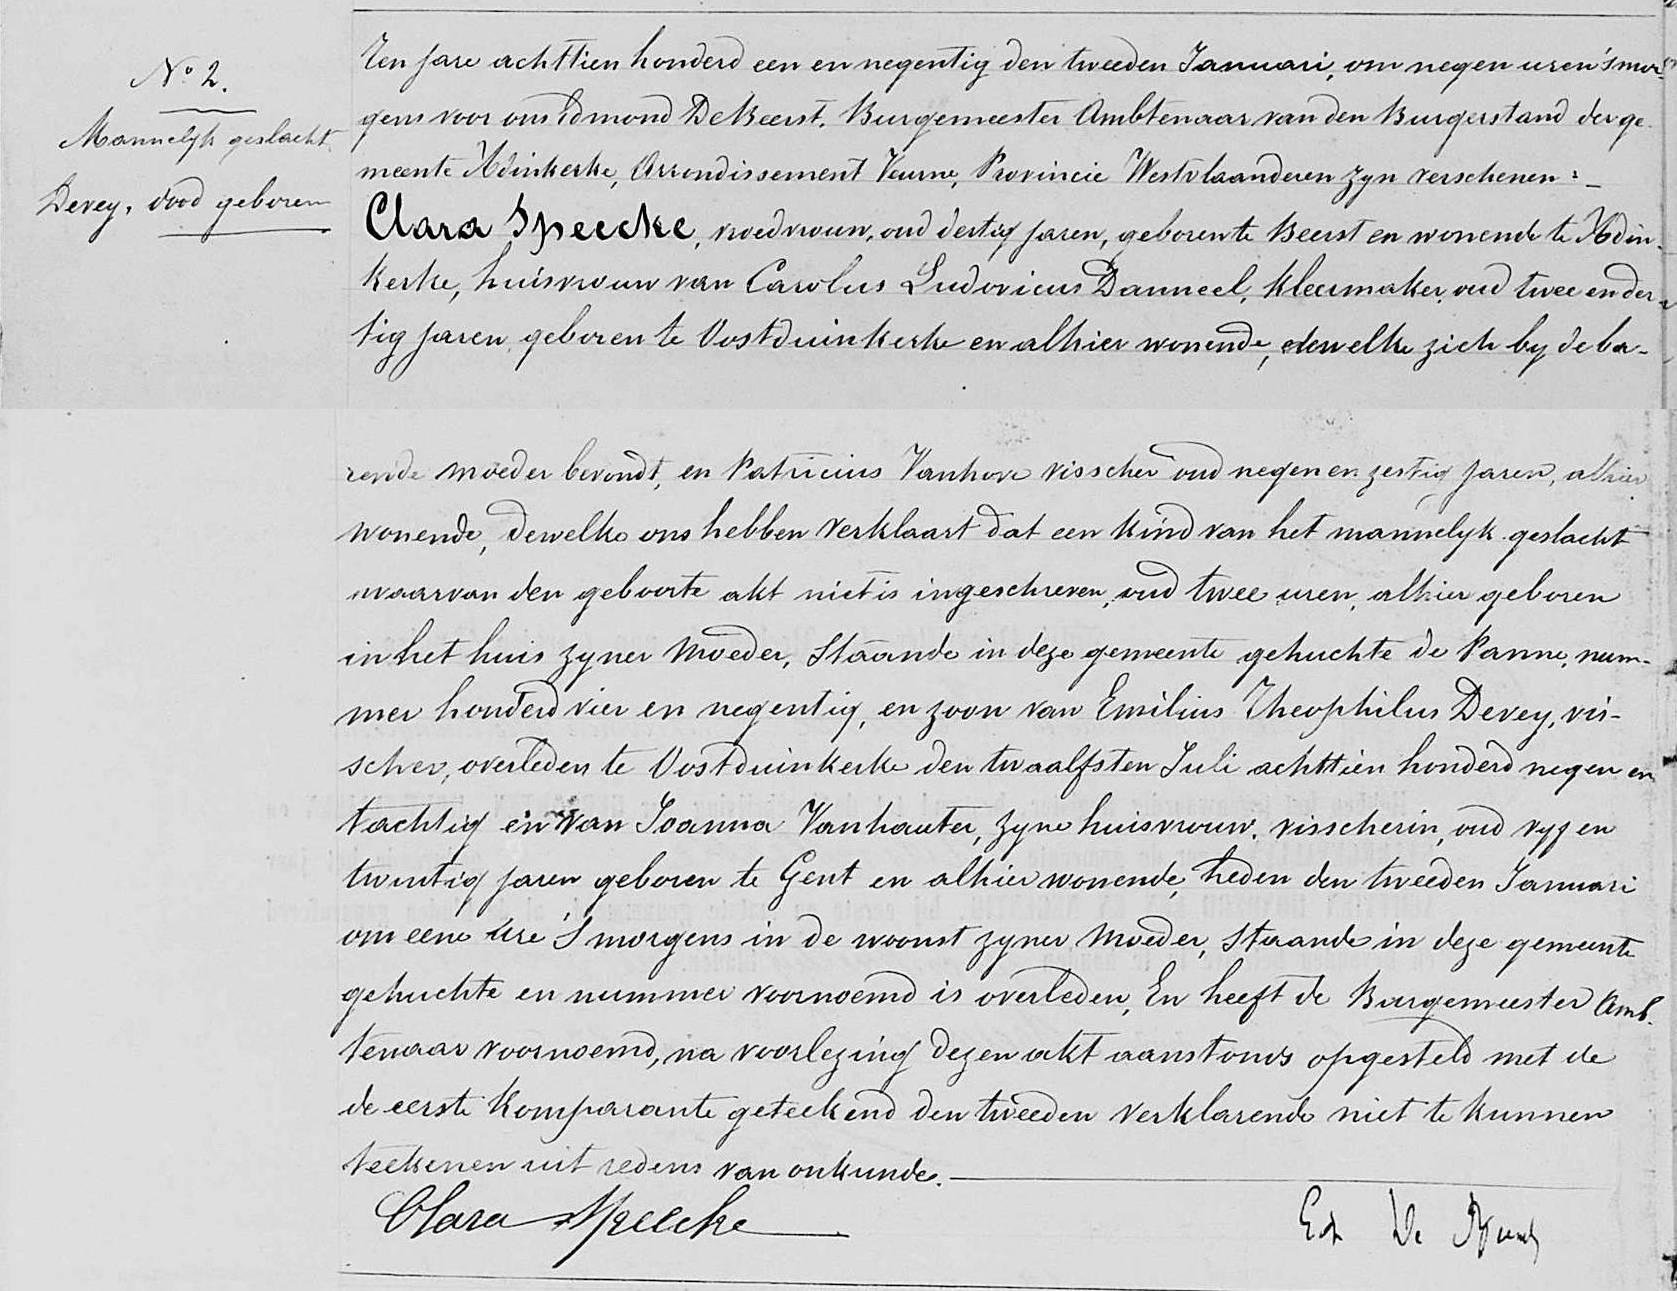 No 2.
Mannelyk geslacht
Devey, dood geboren
Ten jare achttien honderd een en negentig den tweeden Januari, om negen uren 's mor-
gens voor ons Edmond DeBeerst, Burgemeester Ambtenaar van den Burgerstand der ge-
meente Adinkerke, Arrondissement Veurne, Provincie Westvlaanderen zyn verschenen:
Clara Speecke, vroedvrouw, oud dertig jaren, geboren te Beerst en wonende te Adin-
kerke, huisvrouw van Carolus Ludovicus Danneel, kleermaker, oud twee en der-
tig jaren geboren te Oostduinkerke en alhier wonende, dewelke zich by de ba-
rende moeder bevondt, en Patricius Vanhove visscher oud negen en zestig jaren, alhier
wonende, dewelke ons hebben verklaart dat een kind van het mannelyk geslacht
waarvan den geboorte akt niet is ingeschreven, oud twee uren, alhier geboren
in het huis zyner moeder, staande in deze gemeente gehuchte de Panne, num-
mer honderd vier en negentig, en zoon van Emilius Theophilus Devey, vis-
scher, overleden te Oostduinkerke den twaalfsten Juli achttien honderd negen en
tachtig en van Joanna Vanhauter, zyne huisvrouw, visscherin, oud vyf en
twintig jaren geboren te Gent en alhier wonende, heden den tweeden Januari
om eene ure 's morgens in de woonst zyner moeder, staande in deze gemeente
gehuchte en nummer voornoemd is overleden, En heeft de Burgemeester Amb-
tenaar voornoemd, na voorlezing dezen akt aanstonds opgesteld met de
de eerste komparante geteekend den tweeden verklarende niet te kunnen
teekenen uit redens van onkunde.
Clara Speecke
Ed De Beerst